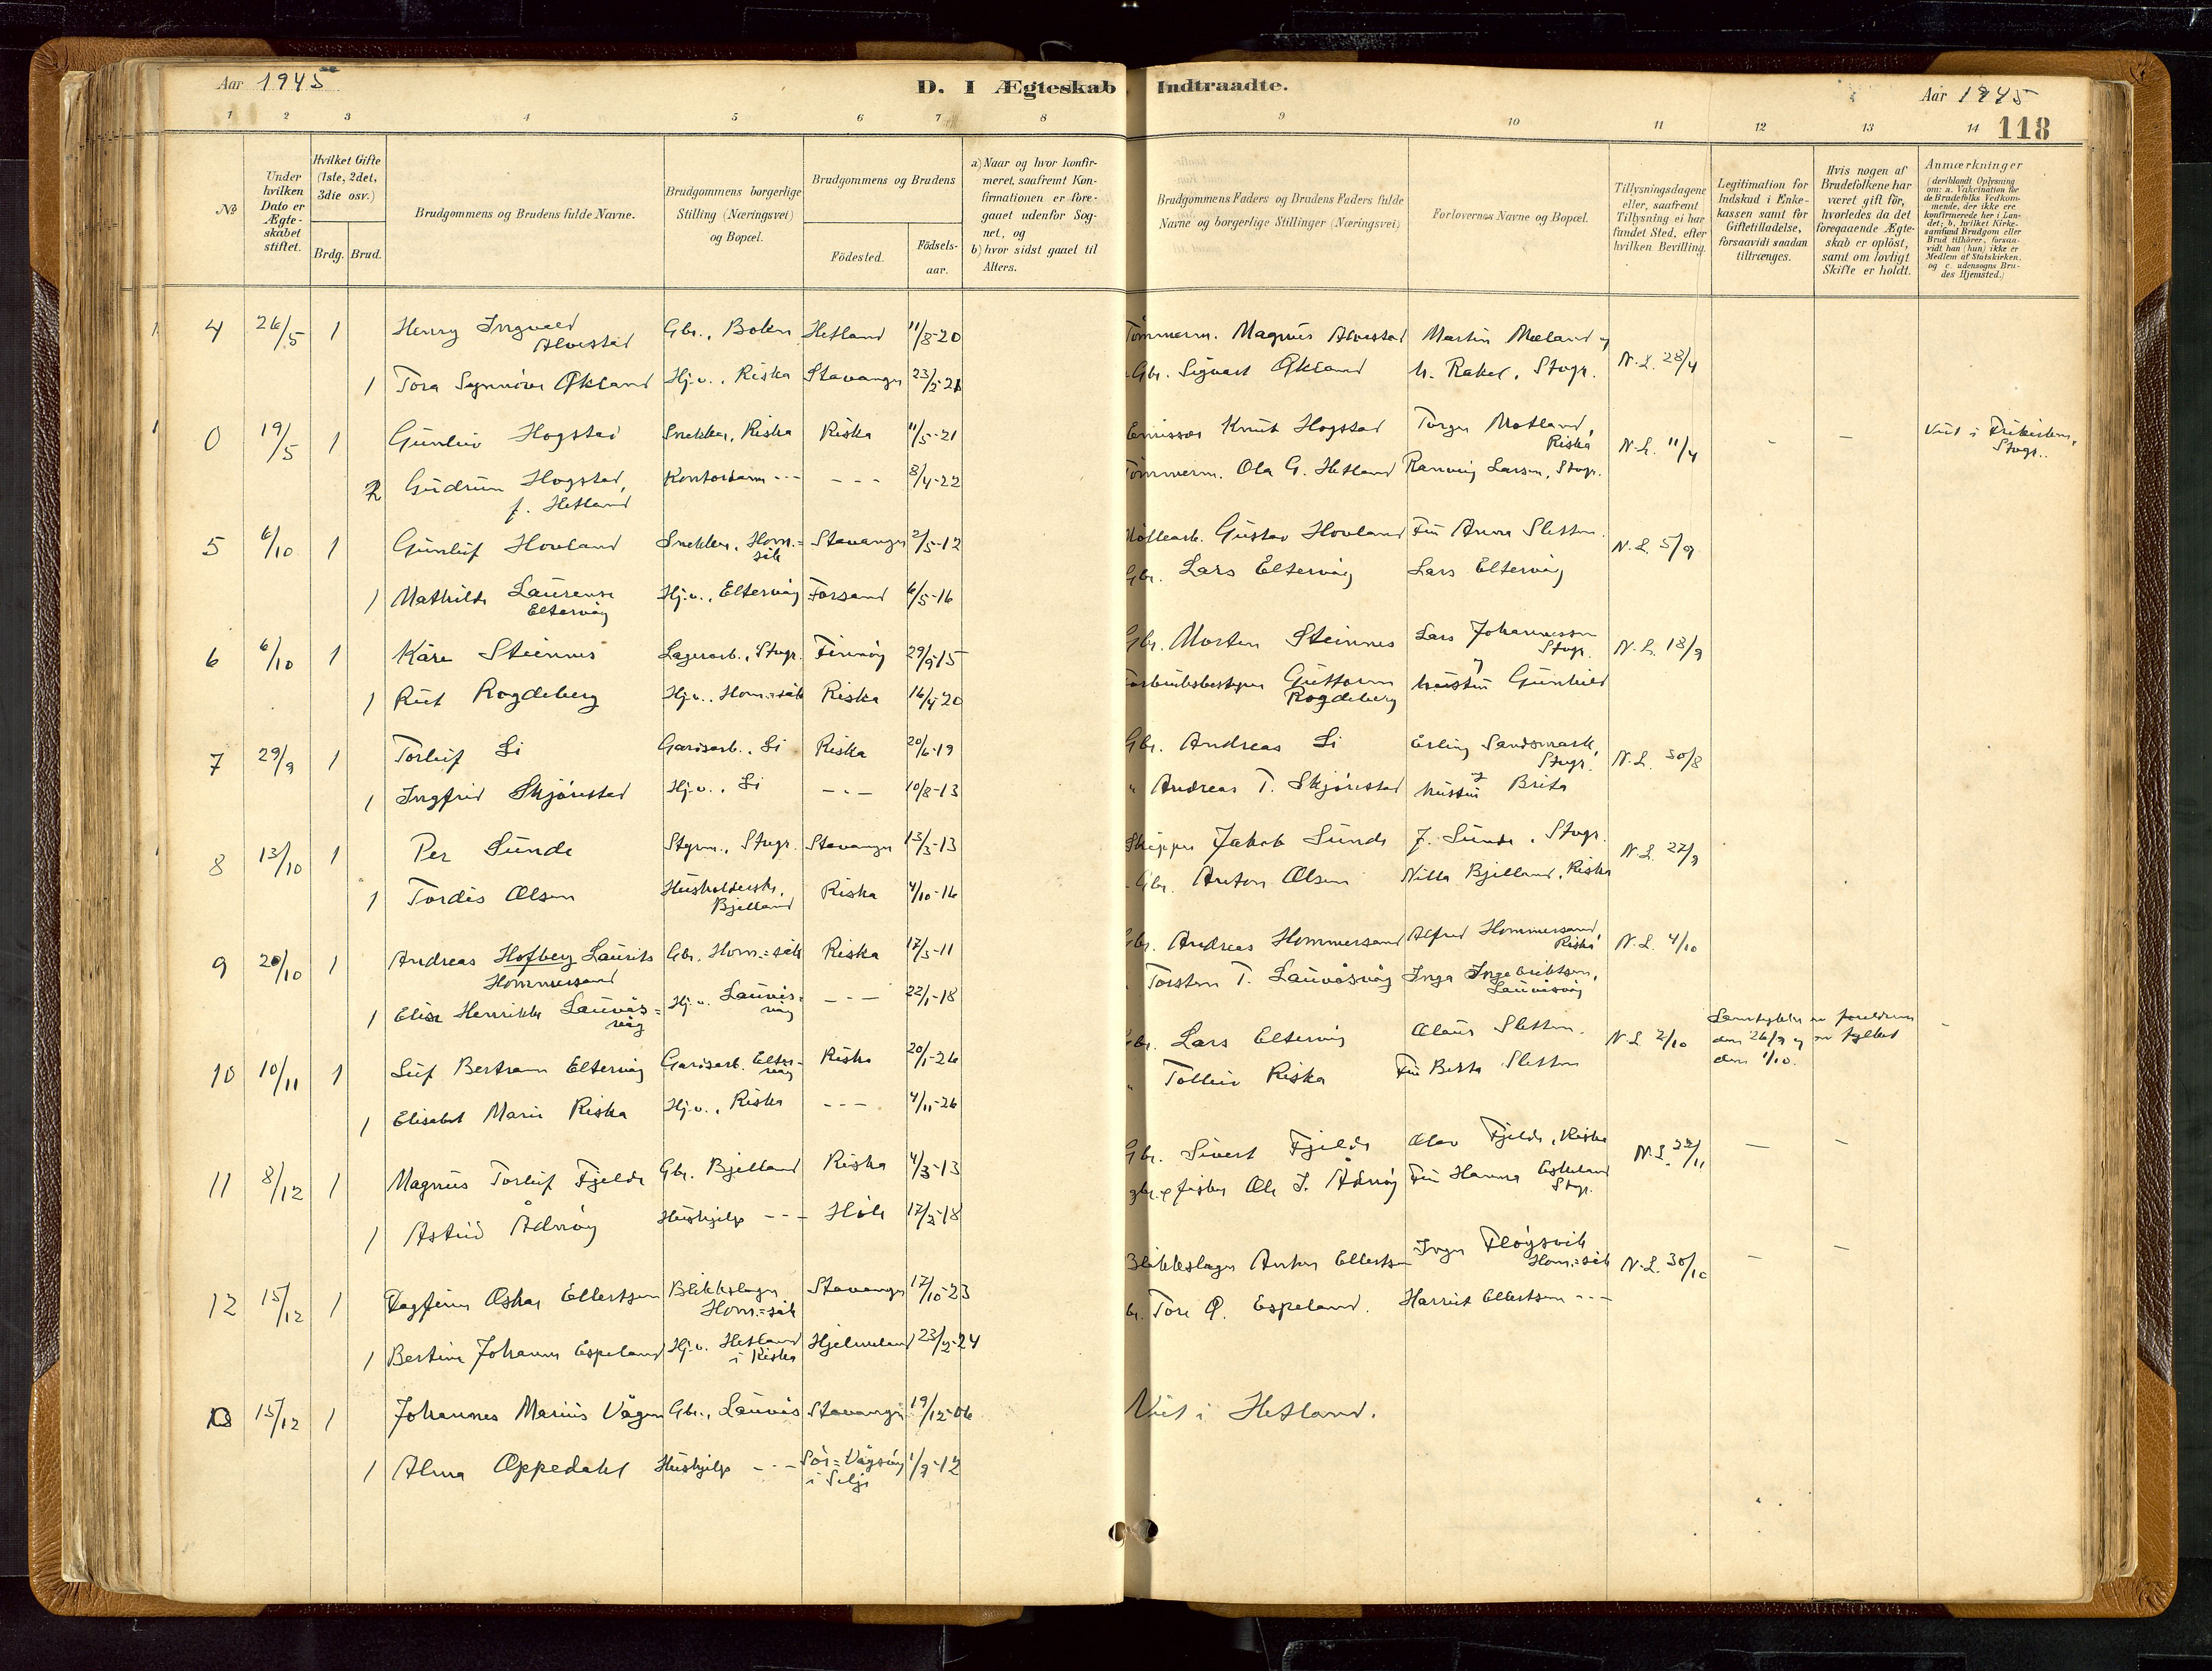 Aar 1945
D. I Ægteskab Indtraadte.
Aar 1945
118
1 2 3 4 5 6 7 8 9 10 11 12 13 14
№
Under hvilken Dato er Ægteskabet stiftet.
Hvilket Gifte (1ste, 2det, 3die osv.)
Brdg. Brud.
Brudgommens og Brudens fulde Navne.
Brudgommens borgerlige Stilling (Næringsvei) og Bopæl.
Brudgommens og Brudens
Födested.
Födsels-aar.
a) Naar og hvor konfirmeret, saafremt Konfirmationen er foregaaet udenfor Sognet, og
b) hvor sidst gaaet til Alters.
Brudgommens Faders og Brudens Faders fulde Navne og borgerlige Stillinger (Næringsvei)
Forlovernes Navne og Bopæl.
Tillysningsdagene eller, saafremt Tillysning ei har fundet Sted, efter hvilken Bevilling.
Legitimation for Indskud i Enkekassen samt for Giftetilladelse, forsaavidt saadan tiltrænges.
Hvis nogen af Brudefolkene har været gift för, hvorledes da det foregaaende Ægteskab er oplöst, samt om lovligt Skifte er holdt.
Anmærkninger
(deriblandt Oplysning om: a. Vakcination for de Brudefolks Vedkommende, der ikke ere konfirmerede her i Landet; b. hvilket Kirkesamfund Brudgom eller Brud tilhörer, forsaavidt han (hun) ikke er Medlem af Statskirken, og c. udensogns Brudes Hjemsted.)
4 26/5 1 Henry Ingvald Alvestad Gbr., Boken Hetland 11/8-20 Tömmerm. Magnus Alvestad Martin Mæland og N.L. 28/4
1 Tora Synnöve Økland Hj.v., Riska Stavanger 23/2-21 Gbr. Sigvart Økland h. Rakel, Stvgr.
0 19/5 1 Gunleiv Hogstad Snekker, Riska Riska 11/5-21 Emissær Knut Hogstad Torger Motland, Riska N.L. 11/4 - - Viet i Frikirken, Stvgr.
2 Gudrun Hogstad, f. Hetland Kontordame --- --- 8/4-22 Tömmerm. Ola G. Hetland Rannveig Larsen, Stvgr.
5 6/10 1 Gunleif Hovland Snekker, Hom.=sik Stavanger 2/5-12 Gustav Hovland Fru Anna Sletten. N.L. 5/9
1 Mathilde Laurense Eltervåg Hj.v., Eltervåg Forsand 6/5-16 Gbr. Lars Eltervåg Lars Eltervåg
6 6/10 1 Kåre Steinnes Lagerarb., Stvgr. Finnöy 29/9-15 Gbr. Morten Steinnes Lars Johannessen Stvgr. og N.L. 18/9
1 Rut Rogdeberg Hj.v., Hom.=sik Riska 16/4-20 Guttorm Rogdeberg hustru Gunhild
7 29/9 1 Torleif Li Garisarb., Li Riska 20/6-19 Gbr. Andreas Li Erling Sandsmark, Stvgr. og N.L. 30/8
1 Ingfrid Skjörestad Hj.v., Li --- 10/8-13 " Andreas T. Skjörestad hustru Brita
8 13/10 1 Per Sunde Styrm., Stvgr. Stavanger 13/3-13 Skipper Jakob Sunde J. Sunde, Stvgr. N.L. 22/9
1 Tordis Olsen Husholderske, Bjelland Riska 4/10-16 Gbr. Anton Olsen Nilla Bjelland, Riska
9 20/10 1 Andreas Hofberg Laurits Hommersand Gbr. Hom.=sik Riska 17/3-11 Gbr. Andreas Hommersand Alfred Hommersand, Riska N.L. 4/10
1 Elise Henrikke Lauvås=våg Hj.v. Lauvås=våg --- 22/1-18 Torsten T. Lauvåsvåg Inga Ingebriktsen, Lauvåsvåg
10 10/11 1 Leif Bertram Eltervåg Garisarb. Elter=våg Riska 20/1-26 Gbr. Lars Eltervåg Olaus Sletten. N.L. 2/10 Samtykke av foreldrene den 26/9 og av fylket den 1/10. -
1 Elisabet Marie Riska Hj.v., Riska --- 4/11-26 " Tolleiv Riska Fru Berta Sletten
11 8/12 1 Magnus Torleif Fjelde Gbr. Bjelland Riska 4/3-13 Gbr. Sivert Fjelde Olav Fjelde, Riska N.L. 22/11 - -
1 Astrid Ådnöy Hushjelp --- Höle 17/2-18 gbr. & fisker Ole J. Ådnöy Fru Hanna Eskeland Stvgr.
12 15/12 1 Dagfinn Oskar Ellertsen Blikkslager Hom.=sik Stavanger 17/10-23 Blikkslager Anton Ellertsen Inger Flöysvik Hom.=sik N.L. 30/10 - -
1 Bertine Johanne Espeland Hj.v. Hetland i Riska Hjelmeland 23/2-24 Tore Ø. Espeland. Harriet Ellertsen ---
0 15/12 1 Johannes Marius Vågen Gbr., Lauvås Stavanger 19/12-06 Viet i Hetland.
1 Alma Oppedahl Hushjelp --- Sör=Vågsöy i Selje 1/9-12